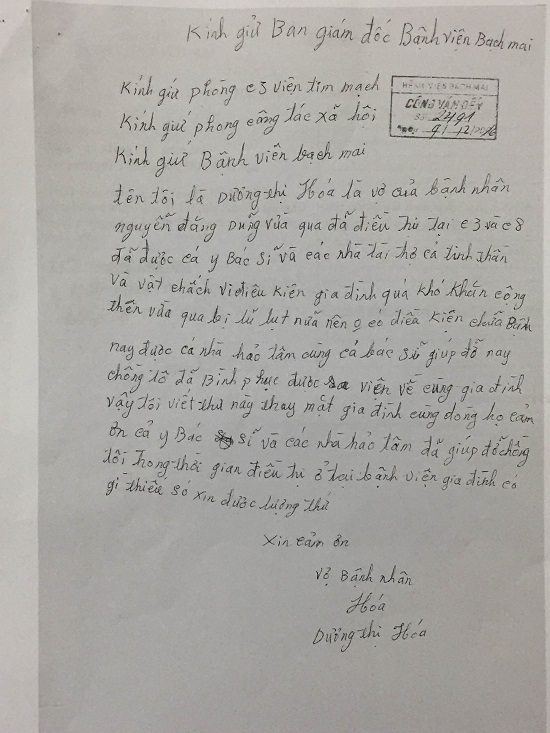 Kính gửi Ban giám đốc Bệnh viện Bạch mai
Kính gứi phòng c3 viện tim mạch
BỆNH VIỆN BẠCH MAI
Kính gưi phong công tác xã hội
CÔNG VĂN ĐẾN
Số 2491
Kính gứi Bệnh viên bạch mai
tên tôi là Dương thị Hoá là vơ của bệnh nhân
nguyễn đăng Dung vừa qua đã điều thi tại c3 và c8
đã được cá y Bác sĩ và các nhà tài thợ cả tinh thần
và vật chách vi điêu kiên gia đình quá khó khăn cộng
thên vừa qua bi lũ lụt nữa nên o có điều kiện chưa Bệnh
nay được cá nhà hảo tâm cùng cá bác sĩ giúp đỡ nay
chồng tô đã Bình phuc được ra viện về cùng gia đình
vậy tôi viết thư này thay mặt gia đình cung dong họ cảm
ơn cả y Bác sĩ và các nhà hảo tâm đã giúp đỡ chồng
tôi trong thời gian điều tại ở tại bệnh viện gia đình có
gì thiếu só xin được lượng thứ
Xin cảm ơn
Vợ Bệnh nhân
Hóa
Dương thị Hóa